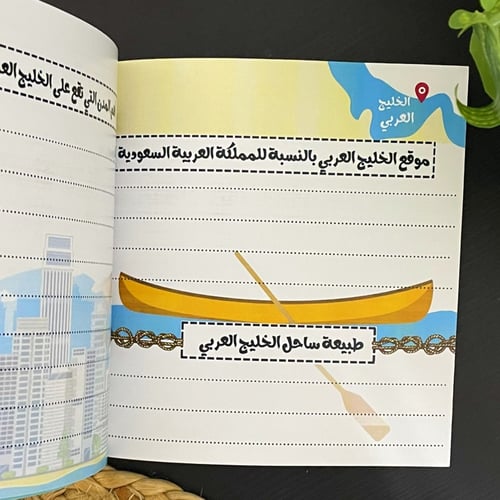 الخليج
العربي
موقع الخليج العربي بالنسبة للمملكة العربية السعودية
طبيعة ساحل الخليج العربي
المدن التي تقع على الخليج